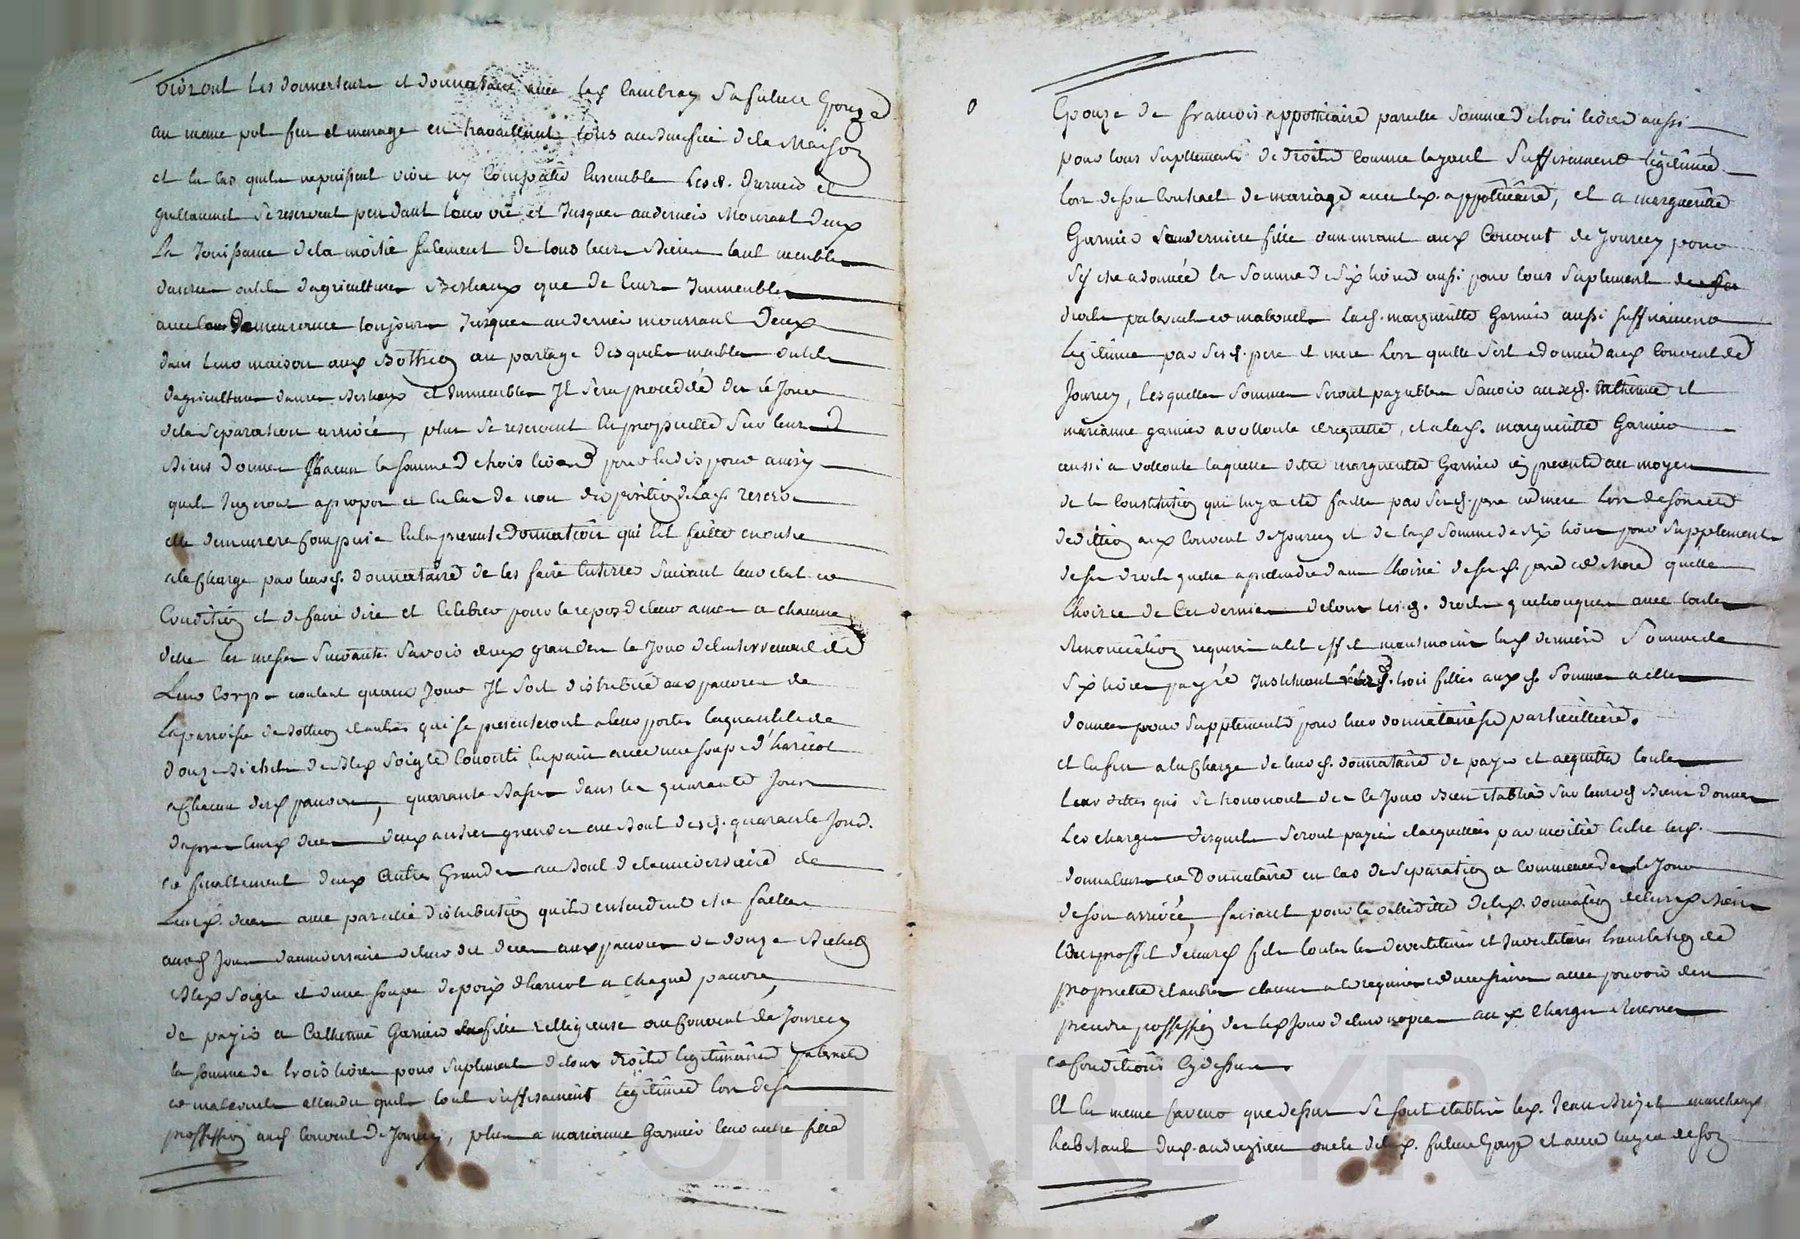 vivront les donnateurs et donnataire avec lad. Cambray sa future Epouze
au meme pot feu et menage en travaillants tous au benefice de la Maison
et en cas quils ne puissent vivre ny compatir Ensemble Lesd. Garnier et
se reservent pendant leur vie et Jusques au dernier Mourant Deux
La Jouissance de la moitié seulement de tous leurs Biens tant meubles
danrées outils d'agriculture Bestiaux que de leurs Immeubles
avec leur Demeurance toujours Jusques au dernier mourrant Deux
dans leur maison aux Botheon au partage desquels meubles outils
d'agriculture danrées Bestiaux et Immeubles Il sera procedé dès le Jour
de la separation arrivée, plus se reservent En propriette Sur leursd.
Biens donnés Chacun la somme de trois livres pour
quils Jugeront apropos et En cas de non disposition de lad. reserve
elle demeurera Comprise En la presente donnation qui Est faitte en outre
ala Charge par leurd. donnataire de les faire Enterrer Suivant leur etat et
Condition et de faire dire et Celebrer pour le repos de leur ames a chacune
delles les messes Suivantes Savoir deux grandes le Jour de l'enterrement de
Leur Corps voulant quau Jour Il soit distribué aux pauvres de
La parroisse de Botheon et autres qui se presenteront a leur portes la quantité de
douze Bichets de Bled Soigle Converti En pain avec une soupe d'haricot
a Chacun desd. pauvres, quarante Basses dans les quarante Jours
dapres leursd. deces deux autres grandes au Bout desd. quarante Jours.
et finallement deux autres Grandes au Bout de l'anniversaire de
Leursd. deces avec pareille distribution quils entendent etre faitte
auxd. Jours d'anniversaire de leur dit deces aux pauvres de douze Bichets
Bled Soigle et d'une soupe de poix d'haricot a chaque pauvre,
de payer a Catherine Garnier leur fille relligieuse au Couvent de Jourcey
la somme de trois livres pour Suplement de tous droits legitimaires paternels
et maternels attendu quils l'ont suffisament legitimée lors de sa
proffession aud. Couvent de Jourcey, plus a marianne Garnier leur autre fille
Epouze de francois appothicaire pareille somme de trois livres aussi
pour tous Supllements de droits Comme layant Suffisament legitimée
lors de son Contract de mariage avec led. appothicaire, et a marguerite
Garnier leur derniere fille demeurant aux Couvent de Jourcey pour
sy etre adonnée la Somme de Six livres aussi pour tous Suplements de
droits paternels et maternels lad. marguerite Garnier aussi suffisament
legitimée par sesd. pere et mere lors quelle sest adonnée aud. Couvent de
Jourcey, lesquelles Sommes seront payables Savoir auxd. Catherine et
marianne garnier a vollonté et requette, et a lad. marguerite Garnier
aussi a volonté laquelle ditte marguerite Garnier icy presente au moyen
de la Constitution qui luy a eté faitte par sesd. pere et mere lors de son acte
dedition aux Couvent de Jourcey et de lad. Somme de Six livres pour Supplement
de ses droits quelle a prendre dans l'hoirie de sesd. pere et Mere quitte
l'hoirie de Ces derniers de tous lesd. droits quelconques avec toutes
Renonciation requises a cet effet neantmoins lad. derniere Somme de
Six livres payée Instituant leurd. trois filles auxd. Sommes a elles
données pour Supplements pour leur donnataires particullieres.
et Enfin a la Charge de leurd. donnataire de payer et acquitter toutes
leur dettes qui Se trouveront dès le Jour Bien etablies sur leursd. Biens donnes
Les charges desquels seront payées et acquittées par moitié Entre lesd.
donnateurs et Donnataire en Cas de Separation a commencer dès le Jour
de son arrivée, faisant pour la validitté de lad. donnation de leursd. Biens
au proffit de leurd. fils toutes les devestitures et Investitures translation de
proprietté et autres clauses a ce requises et necessaires avec pouvoir den
prendre possession dès led. Jour de leur nopces aux Charges Reserves
et Conditions Cy dessus.
Et En meme faveur que dessus se sont etablis led. Jean Brizet marchand
habitant dud. andrezieu oncle de lad. future Epouze et avec luy de son